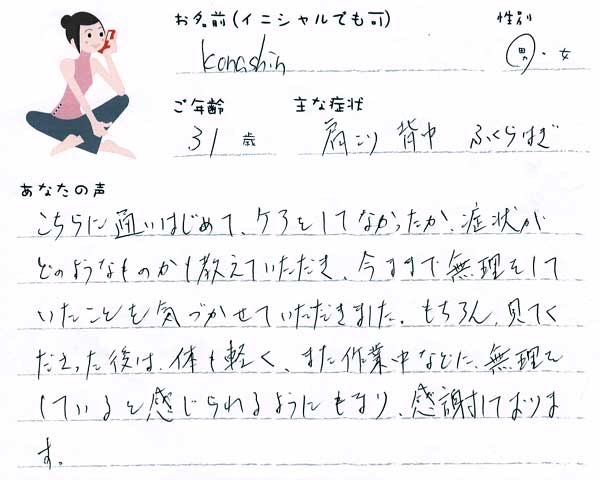 お名前(イニシャルでも可)
性別
konashin
男・女
ご年齢
主な症状
31歳
肩こり 背中 ふくらはぎ
あなたの声
こちらに通いはじめて、ケアをしてなかったか、症状が
どのようなものかも教えていただき、今まで無理をして
いたことを気づかせていただきました。もちろん、見てく
ださった後は、体も軽く、また作業中などに、無理を
していると感じられるようにもなり、感謝しておりま
す。